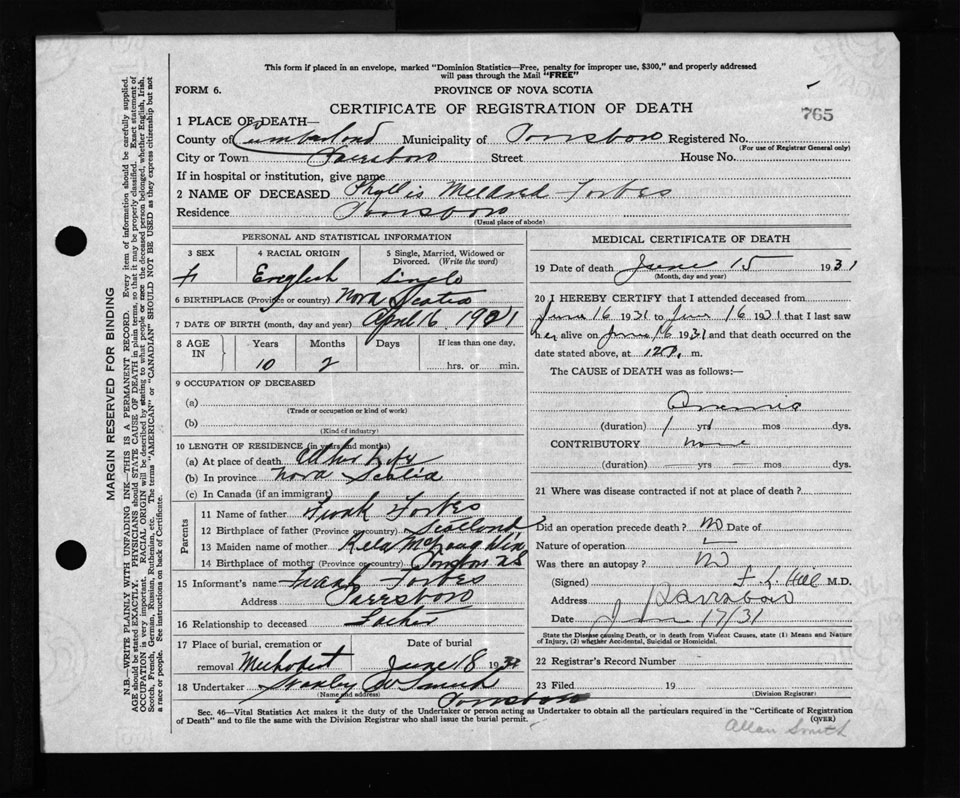 This form if placed in an envelope, marked "Dominion Statistics—Free, penalty for improper use, $300," and properly addressed
will pass through the Mail "FREE"
FORM 6.
PROVINCE OF NOVA SCOTIA
765
CERTIFICATE OF REGISTRATION OF DEATH
1 PLACE OF DEATH—
County of Cumberland Municipality of Parrsboro Registered No.
(For use of Registrar General only)
City or Town Parrsboro Street House No.
If in hospital or institution, give name
2 NAME OF DECEASED Phyllis Mildred Forbes
Residence Parrsboro
(Usual place of abode)
PERSONAL AND STATISTICAL INFORMATION
3 SEX 4 RACIAL ORIGIN 5 Single, Married, Widowed or Divorced. (Write the word)
F English Single
6 BIRTHPLACE (Province or country) Nova Scotia
7 DATE OF BIRTH (month, day and year) April 16 1921
8 AGE IN Years Months Days If less than one day,
10 2 hrs. or min.
9 OCCUPATION OF DECEASED
(a)
(Trade or occupation or kind of work)
(b)
(Kind of industry)
10 LENGTH OF RESIDENCE (in years and months)
(a) At place of death Life
(b) In province Nova Scotia
(c) In Canada (if an immigrant)
Parents
11 Name of father Frank Forbes
12 Birthplace of father (Province or country) Scotland
13 Maiden name of mother
14 Birthplace of mother (Province or country) Parrsboro N S
15 Informant's name Frank Forbes
Address Parrsboro
16 Relationship to deceased Father
17 Place of burial, cremation or Date of burial
removal Methodist June 18 193
18 Undertaker Stanley W Smith
(Name and address)
Parrsboro
MEDICAL CERTIFICATE OF DEATH
19 Date of death June 15 1931
(Month, day and year)
20 I HEREBY CERTIFY that I attended deceased from
June 16 1931 to June 16 1931 that I last saw
her alive on June 16 1931 and that death occurred on the
date stated above, at 12 m.
The CAUSE of DEATH was as follows:—
(duration) 1 yrs mos dys.
CONTRIBUTORY none
(duration) — yrs — mos dys.
21 Where was disease contracted if not at place of death?
Did an operation precede death? no Date of
Nature of operation —
Was there an autopsy? no
(Signed) F. L. Hill M.D.
Address Parrsboro
Date June 17/31
State the Disease causing Death, or in death from Violent Causes, state (1) Means and Nature
of Injury, (2) whether Accidental, Suicidal or Homicidal.
22 Registrar's Record Number
23 Filed 19
(Division Registrar)
Sec. 46—Vital Statistics Act makes it the duty of the Undertaker or person acting as Undertaker to obtain all the particulars required in the "Certificate of Registration
of Death" and to file the same with the Division Registrar who shall issue the burial permit.
(OVER)
Allan Smith
MARGIN RESERVED FOR BINDING
N.B.—WRITE PLAINLY WITH UNFADING INK—THIS IS A PERMANENT RECORD. Every item of information should be carefully supplied.
AGE should be stated EXACTLY. PHYSICIANS should STATE CAUSE OF DEATH in plain terms, so that it may be properly classified. Exact statement of
OCCUPATION is very important. RACIAL ORIGIN will be described by stating to what people or race the deceased person belonged, whether English, Irish,
Scotch, French, German, Russian, Ruthenian, etc. The terms "AMERICAN" or "CANADIAN" SHOULD NOT BE USED as they express citizenship but not
a race or people. See instructions on back of Certificate.